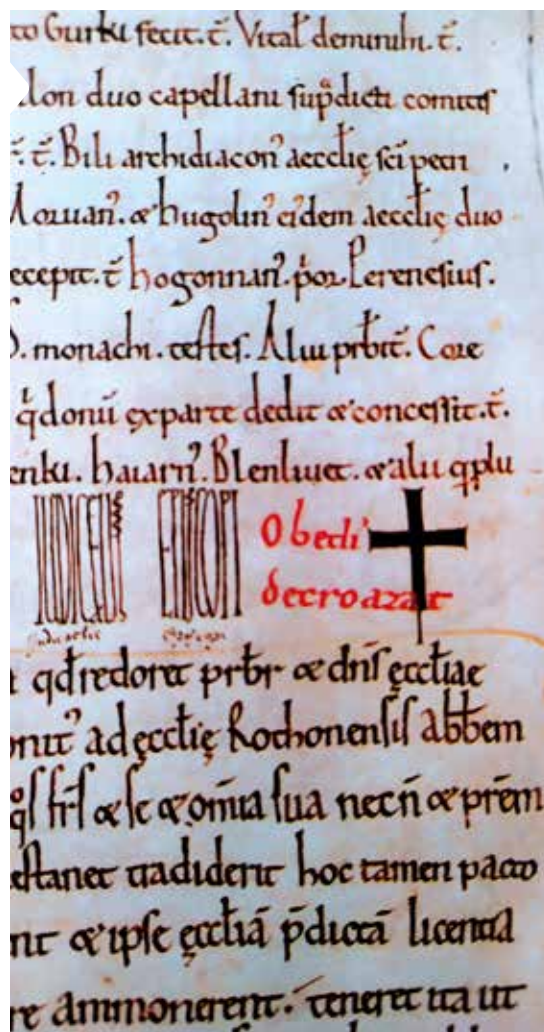 to Gurki fecit. t̄. Vital' deminihi. t̄.
lon duo capellani sup̄dicti comitis
t̄. t̄. Bili archidiacon' aecclię sc̄i petri
Moruan'. & hugolin' ei'dem aecclię duo
ecepit. t̄ hogonnan'. p̄or Perenesius.
monachi. testes. Alui pr̄bit̄. Core
q̄d donū ex parte dedit & concessit. t̄.
enki. haiarn'. Blenliuet. & alii q̄ plu
IUDICELIS EPISCOPI Obedi'
decroazat
qd̄ redoret pr̄br & dn̄s ęccliae
onit' ad ęcclię Rothonensis abb̄em
q̄s fr̄s & se & om̄ia sua necn̄ & pr̄em
estanet tradiderit hoc tamen pacto
nt & ipse ęccliā p̄dictā licentia
re ammonerent. teneret ita ut